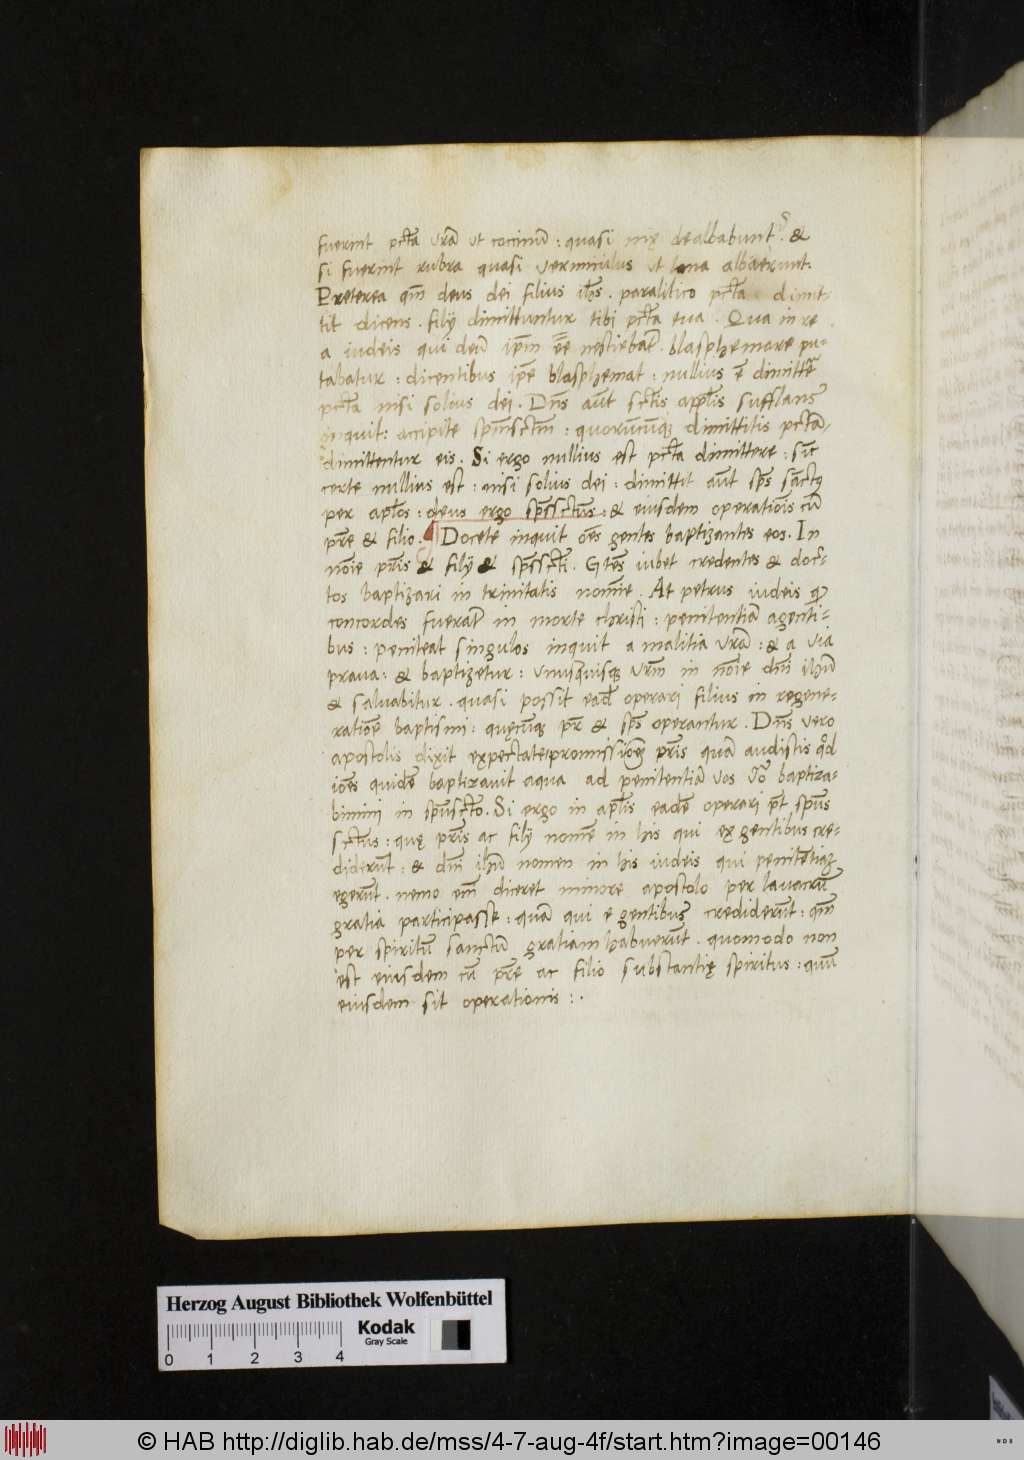 fuerint pcta vra ut coccinũ : quasi nix dealbabunt̃ . &
si fuerint rubra quasi vermiculus ut lana alba erunt .
Preterea qm̃ deus dei filius ih̃s . paralitico pct̃a dimit-
tit dicens . filij dimittuntur tibi pct̃a tua . Qua in re
a iudeis qui deũ ip̃m eẽ nesciebãt . blasphemare pu-
tabatur : dicentibus ip̃e blasphemat : nullius ẽ dimittẽ
pct̃a nisi solius dei . Dñs aũt sct̃is aplĩs sufflans
inquit : accipite spm̃sctm̃ : quorũcũq; dimittitis pctã ,
dimittentur eis . Si ergo nullius est pct̃a dimittere : sic̃
certe nullius est : nisi solius dei : dimittit aũt sp̃s sãctq
per apl̃os : deus ergo sp̃ssctũs : & eiusdem operatiõis cũ
pr̃e & filio . Docete inquit oẽs gentes baptizantes eos . In
nõie pr̃is & filij & sp̃ssct̃i . Gẽtes iubet credentes & doc̃-
tos baptizari in trinitatis nom̃ie . At petrus iudeis q
concordes fuerãt in morte christi : penitentiã agenti-
bus : peniteat singulos inquit a malitia vrã : & a via
prava : & baptizetur : vnusquisq; vrm̃ in nõie dñi ihũ
& salvabitur . quasi possit eadẽ operari filius in regene-
ratiõe baptismi : quęcũq; pr̃ & sp̃s operantur . Dñs vero
apostolis dixit expectate promissionẽ pr̃is quã audistis qd̃
iões quidẽ baptizavit aqua ad penitentiã vos vo̾ baptiza-
bimini in spũsct̃o . Si ergo in apl̃is eadẽ operari pt̃ spũs
sctũs : quę pr̃is ac filij nomẽ in his qui ex gentibus cre-
diderũt : & dñi ihũ nomen in his iudeis qui penitẽtiaꝫ
egerũt . nemo em̃ diceret minore apostolo per lavacrũ
gratia participasse : quã qui e gentibus crediderũt : qm̃
per spiritũ sanctũ gratiam habuerũt . quomodo non
est eiusdem cũ pr̃e ac filio substantię spiritus : quũ
eiusdem sit operationis : .
Herzog August Bibliothek Wolfenbüttel
Kodak
Gray Scale
0 1 2 3 4
© HAB http://diglib.hab.de/mss/4-7-aug-4f/start.htm?image=00146